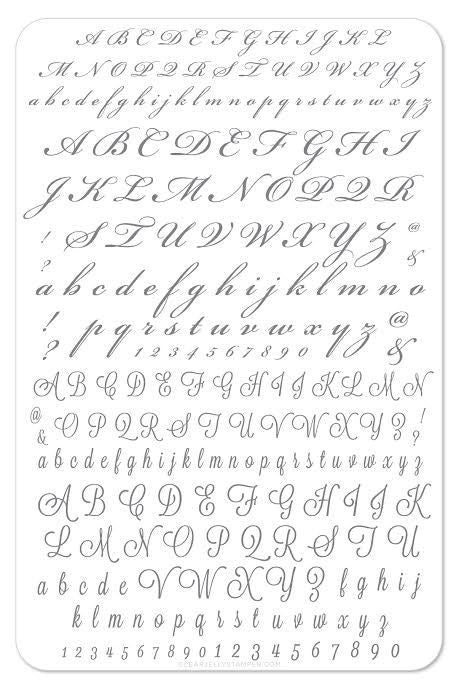 A B C D E F G H I J K L
M N O P Q R S T U V W X Y Z
a b c d e f g h i j k l m n o p q r s t u v w x y z
A B C D E F G H I
J K L M N O P Q R
! S T U V W X Y Z @
? &
a b c d e f g h i j k l m n o
! p q r s t u v w x y z @
? 1 2 3 4 5 6 7 8 9 0 &
A B C D E F G H I J K L M N
@ & O P Q R S T U V W X Y Z ? !
a b c d e f g h i j k l m n o p q r s t u v w x y z
A B C D E F G H I J K
L M N O P Q R S T U
a b c d e V W X Y Z f g h i j
k l m n o p q r s t u v w x y z
1 2 3 4 5 6 7 8 9 0 1 2 3 4 5 6 7 8 9 0
©CLEARJELLYSTAMPER.COM